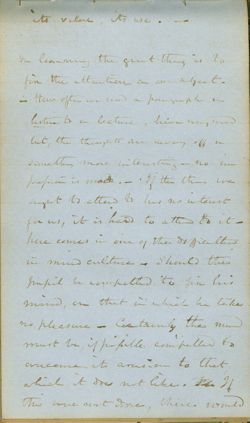 its value, its use. —
In learning the great thing is to
fix the attention on one subject.
— How often we read a paragraph or
listen to a lecture, hear every word
but, the thoughts are away off on
something more interesting — no im
pression is made. — If the thing we
ought to attend to has no interest
for us, it is hard to attend to it —
here comes in one of the difficulties
in mind culture — Should the
pupil be compelled to fix his
mind, on that in which he takes
no pleasure — Certainly the mind
must be if possible compelled to
overcome its aversion to that
which it does not like. If
this were not done, there would